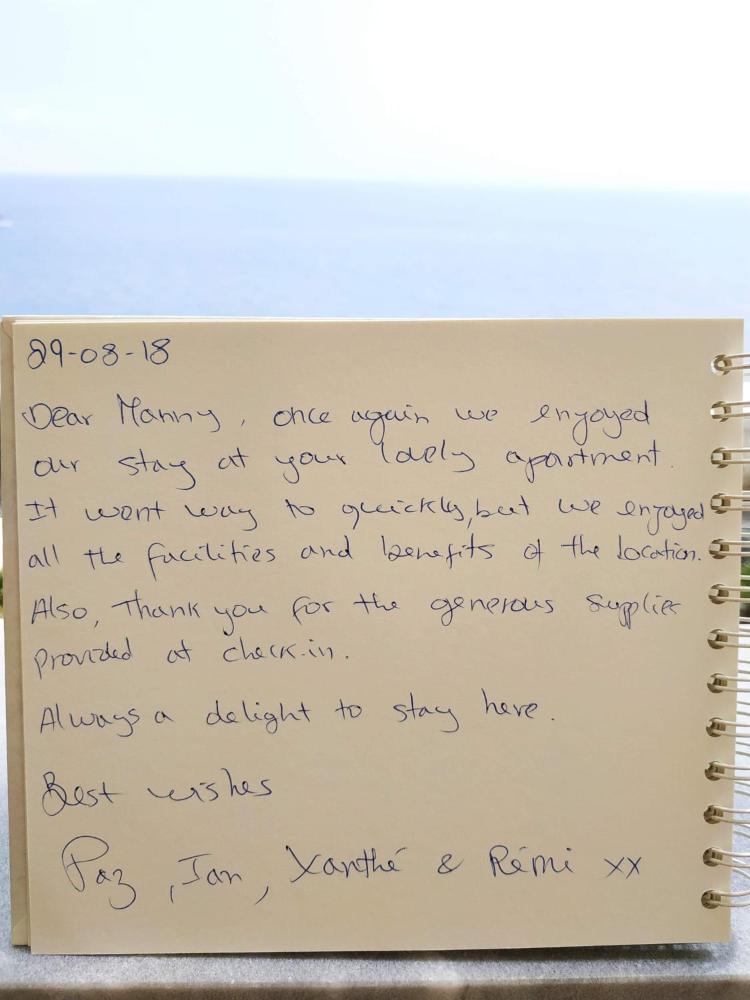 29-08-18
Dear Manny, once again we enjoyed
our stay at your lovely apartment.
It went way to quickly, but we enjoyed
all the facilities and benefits of the location.
Also, thank you for the generous supplies
provided at check-in.
Always a delight to stay here.
Best wishes
Paz, Ian, Xanthé & Rémi xx